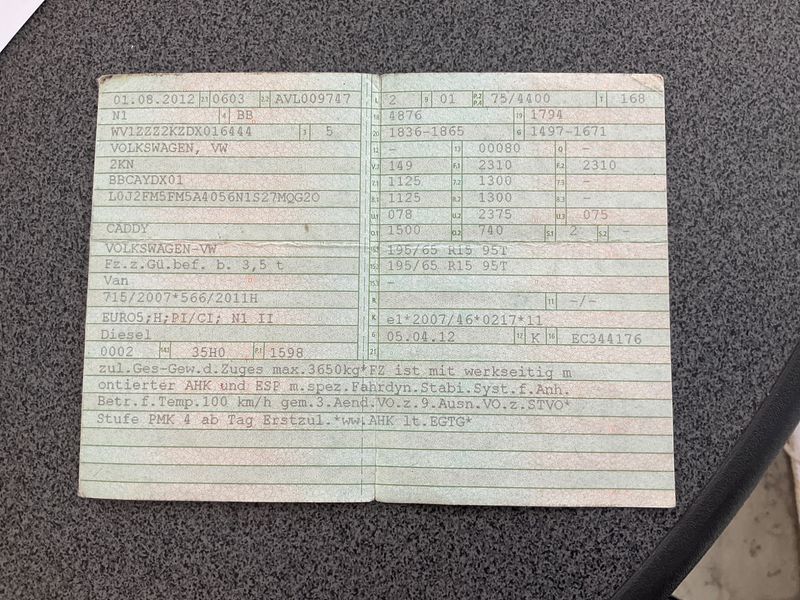 01.08.2012 2.1 0603 2.2 AVL009747
N1 4 BB
WV1ZZZ2KZDX016444 3 5
VOLKSWAGEN, VW
2KN
BBCAYDX01
L0J2FM5FM5A4056N1S27MQG2O
CADDY
VOLKSWAGEN-VW
Fz.z.Gü.bef. b. 3,5 t
Van
715/2007*566/2011H
EURO5;H;PI/CI; N1 II
Diesel
0002 35H0 P.1 1598
L 2 9 01 P.2 P.4 75/4400 T 168
18 4876 19 1794
20 1836-1865 G 1497-1671
12 - 13 00080 Q -
V.7 149 F.1 2310 F.2 2310
7.1 1125 7.2 1300 7.3
8.1 1125 8.2 1300 8.3 -
U.1 078 U.2 2375 U.3 075
O.1 1500 O.2 740 S.1 2 S.2 -
15.1 195/65 R15 95T
15.2 195/65 R15 95T
15.3 -
R 11 -/-
K e1*2007/46*0217*11
6 05.04.12 17 K 16 EC344176
21
zul.Ges-Gew.d.Zuges max.3650kg*FZ ist mit werkseitig m
ontierter AHK und ESP m.spez.Fahrdyn.Stabi.Syst.f.Anh.
Betr.f.Temp.100 km/h gem.3.Aend.VO.z.9.Ausn.VO.z.STVO*
Stufe PMK 4 ab Tag Erstzul.*ww.AHK lt.EGTG*